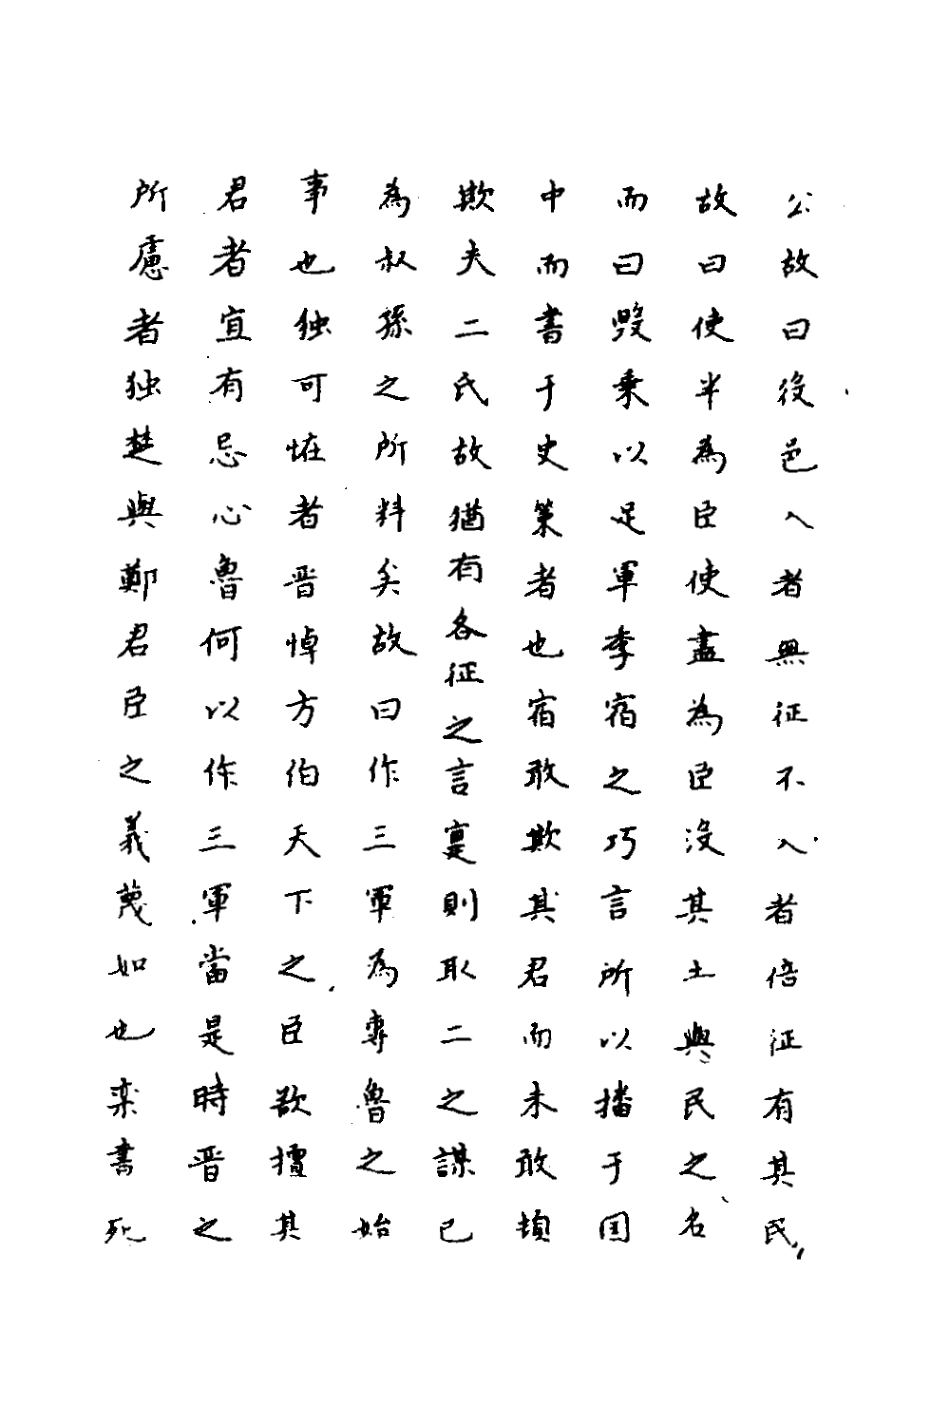 公故曰役邑入者無征不入者倍征有其民
故曰使半為臣使盡為臣没其土與民之名
而曰毁乘以足軍季宿之巧言所以播于国
中而書于史策者也宿敢欺其君而未敢頓
欺夫二氏故猶有各征之言寔則取二之謀已
為叔孫之所料矣故曰作三軍為專魯之始
事也独可恠者晋悼方伯天下之臣欲擅其
君者宜有忌心魯何以作三軍當是時晋之
所慮者独楚與鄭君臣之義蔑如也栾書死